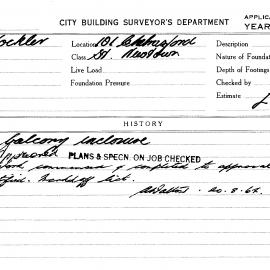 CITY BUILDING SURVEYOR'S DEPARTMENT
APPLIC
YEAR
ockler
Location 101
Description
Class St. Newtown
Nature of Foundat
Live Load
Depth of Footings
Foundation Pressure
Checked by
Estimate £
HISTORY
Balcony inclosure
Approved PLANS & SPECN. ON JOB CHECKED
work commenced & completed to approval
off list.
20.8.64.